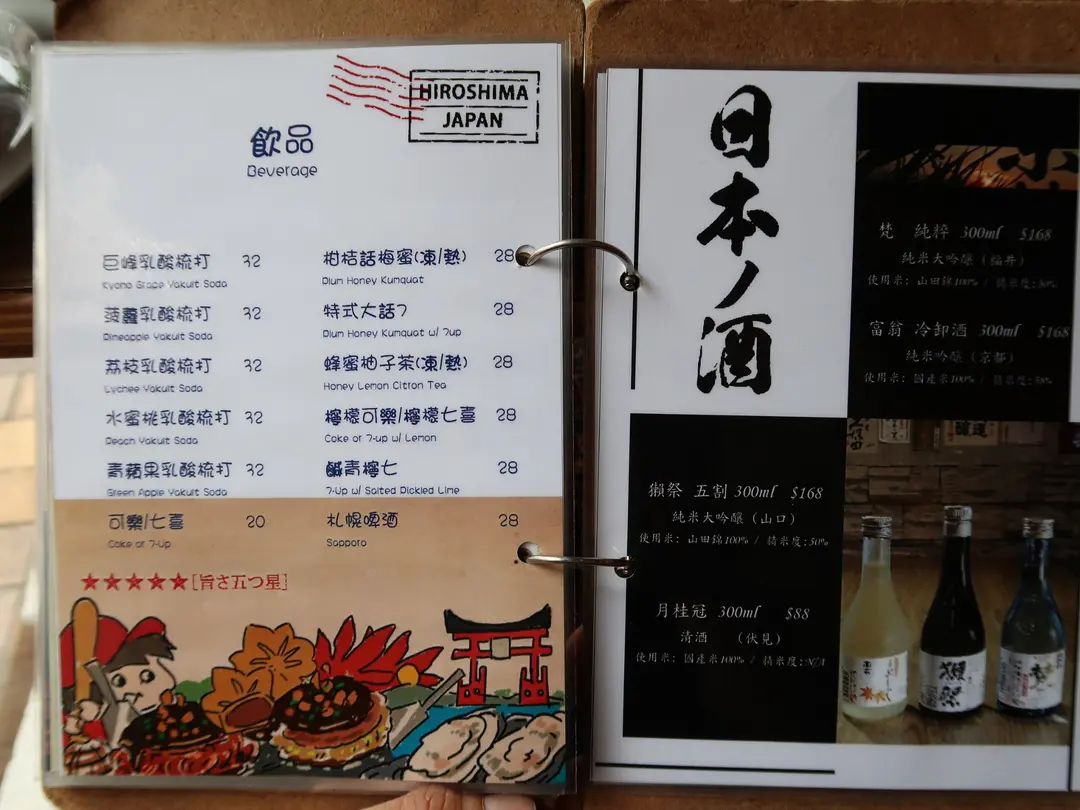 HIROSHIMA
JAPAN
飲品
Beverage
巨峰乳酸梳打 32
Kyoho Grape Yakult Soda
菠蘿乳酸梳打 32
Pineapple Yakult Soda
荔枝乳酸梳打 32
Lychee Yakult Soda
水蜜桃乳酸梳打 32
Peach Yakult Soda
青蘋果乳酸梳打 32
Green Apple Yakult Soda
可樂/七喜 20
Coke or 7-up
柑桔話梅蜜(凍/熱) 28
Plum Honey Kumquat
特式大話7 28
Plum Honey Kumquat w/ 7up
蜂蜜柚子茶(凍/熱) 28
Honey Lemon Citron Tea
檸檬可樂/檸檬七喜 28
Coke or 7-up w/ Lemon
鹹青檸七 28
7-Up w/ Salted Pickled Lime
札幌啤酒 28
Sapporo
★★★★★[旨さ五つ星]
日本ノ酒
梵 純粹 300ml $168
純米大吟釀（福井）
使用米: 山田錦100% / 精米度:50%
富翁 冷卸酒 300ml $168
純米吟釀（京都）
使用米: 國產米100% / 精米度:58%
獺祭 五割 300ml $168
純米大吟釀（山口）
使用米: 山田錦100% / 精米度:50%
月桂冠 300ml $88
清酒 （伏見）
使用米: 國產米100% / 精米度:N/A
獺祭
梵